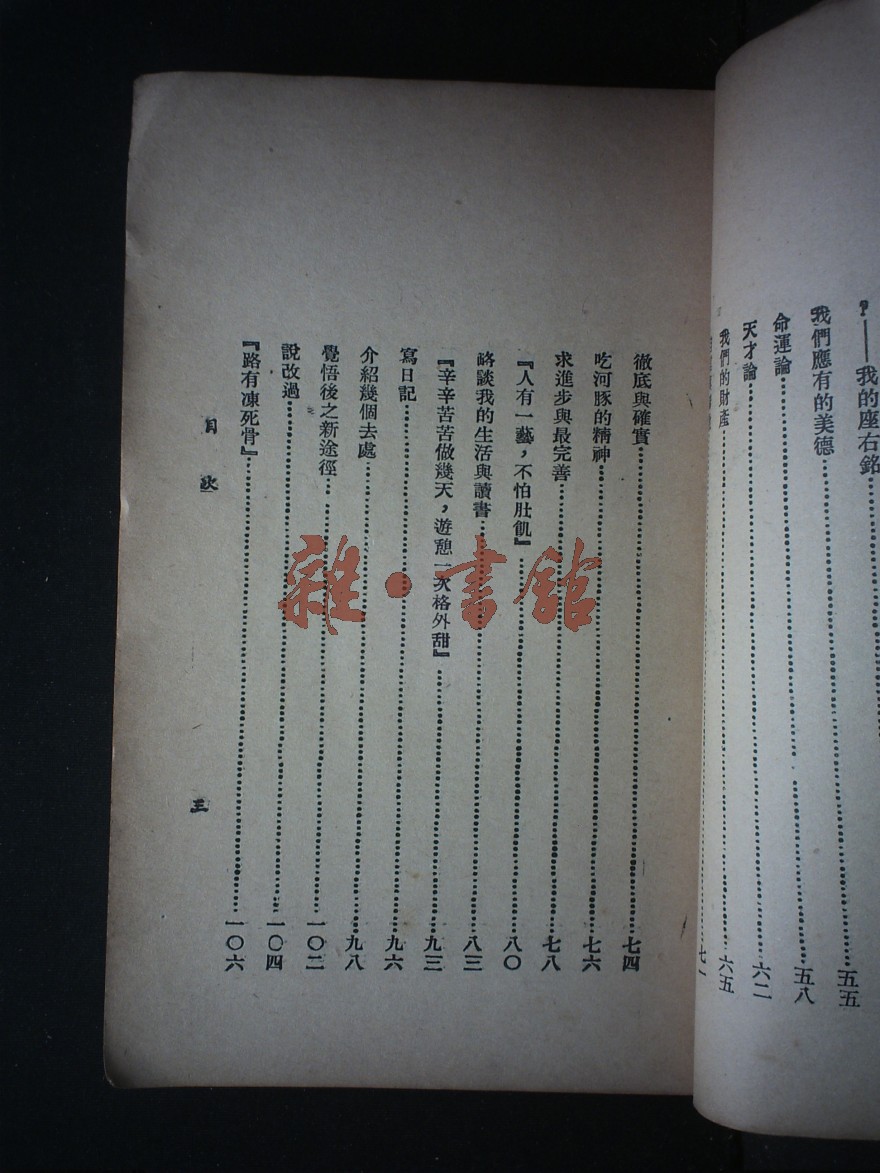 ?——我的座右銘……五五
我們應有的美德……五八
命運論……六二
天才論……六五
我們的財產……七一
徹底與確實……七四
吃河豚的精神……七六
求進步與最完善……七八
『人有一藝，不怕肚飢』……八〇
略談我的生活與讀書……八三
『辛辛苦苦做幾天，遊憩一次格外甜』……九三
寫日記……九六
介紹幾個去處……九八
覺悟後之新途徑……一〇二
說改過……一〇四
『路有凍死骨』……一〇六
目次
三
雜·書館